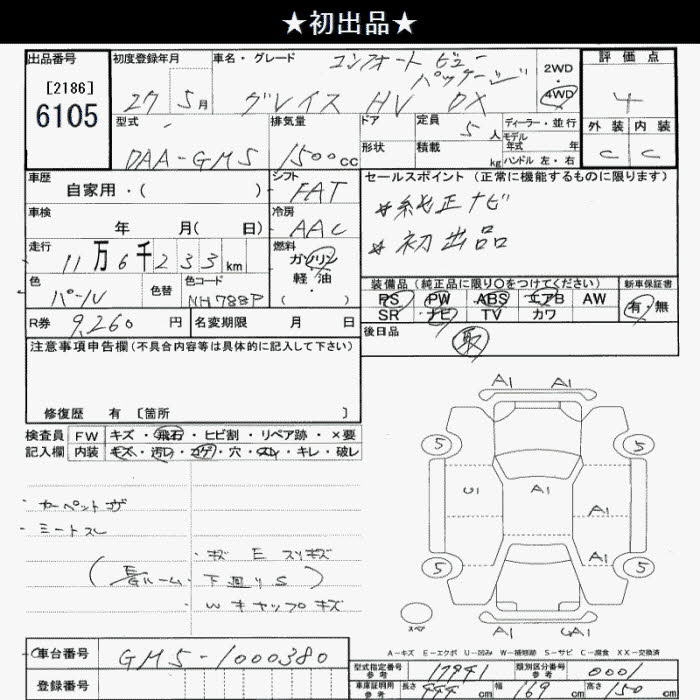 ★初出品★
出品番号
[2186]
6105
初度登録年月
27 5月
車名・グレード
コンフォート ビュー
パッケージ
グレイス HV DX
2WD
・
4WD
評価点
4
外装 内装
C C
型式
DAA-GM5
排気量
1500cc
ドア
形状
定員 5人
積載 kg
ディーラー・並行
モデル
年式 年
ハンドル 左・右
車歴
自家用・( )
シフト
FAT
車検
年 月( 日)
冷房
AAC
走行
11万6千233km
燃料
ガソリン
軽・油
( )
色
パール
色替
色コード
NH788P
R券 9,260円
名変期限 月 日
セールスポイント(正常に機能するものに限ります)
*純正ナビ
*初出品
装備品(純正品に限り○をつけてください)
PS PW ABS エアB AW
SR ナビ TV カワ
新車保証書
有・無
後日品
取
注意事項申告欄(不具合内容等は具体的に記入して下さい)
修復歴 有 [箇所 ]
検査員
記入欄
FW キズ・飛石・ヒビ割・リペア跡・×要
内装 キズ・汚れ・コゲ・穴・スレ・キレ・破レ
・カーペットコゲ
・シートスレ
・キズ E スリキズ
下廻りS
・Wキャップキズ
A1 A1
5 5
U1 A1 A1
A1
5 5
スペア
A1
A-キズ E-エクボ U-凹み W-補修跡 S-サビ C-腐食 XX-交換済
車台番号
GM5-1000380
登録番号
型式指定番号
参考
17941
類別区分番号
参考
0001
車庫証明用
参考
長さ 444cm
幅 169cm
高さ 150cm